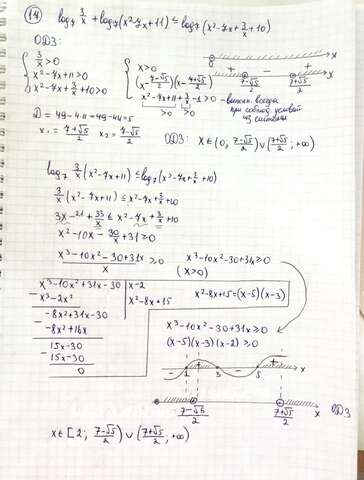 (14) log₇ 3/x + log₇(x²-7x+11) ≤ log₇(x²-7x+3/x+10)
ОДЗ:
{ 3/x > 0
x²-7x+11 > 0
x²-7x+3/x+10 > 0
{ x > 0
(x-(7-√5)/2)(x-(7+√5)/2) > 0
x²-7x+11+3/x-1 > 0 - выполн. всегда при соблюд. условий из системы
>0 >0
0 (7-√5)/2 (7+√5)/2 x
D = 49-4·11 = 49-44 = 5
x₁ = (7+√5)/2 x₂ = (7-√5)/2
ОДЗ: x∈(0; (7-√5)/2)∪((7+√5)/2; +∞)
log₇ 3/x (x²-7x+11) ≤ log₇(x²-7x+3/x+10)
3/x (x²-7x+11) ≤ x²-7x+3/x+10
3x-21+33/x ≤ x²-7x+3/x+10
x²-10x-30/x+31 ≥ 0
(x³-10x²-30+31x)/x ≥ 0
x³-10x²-30+31x ≥ 0
(x>0)
x³-10x²+31x-30 | x-2
x³-2x² | x²-8x+15
-8x²+31x-30
-8x²+16x
15x-30
15x-30
0
x²-8x+15=(x-5)(x-3)
x³-10x²-30+31x ≥ 0
(x-5)(x-3)(x-2) ≥ 0
- 2 + 3 - 5 + x
(7-√5)/2 (7+√5)/2 x ОДЗ
x∈[2; (7-√5)/2)∪((7+√5)/2; +∞)